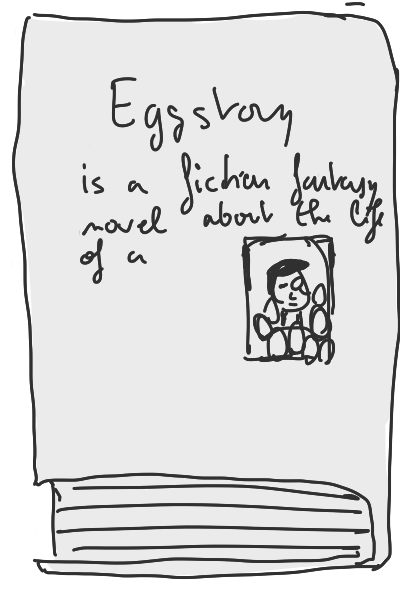 Eggstory
is a fiction fantasy
novel about the life
of a